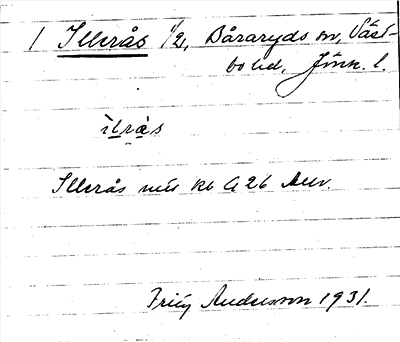 1 Illerås 1/2, Båraryds sn, Väst-
bo hd, Jönk. l.
ìlrás
Illerås mts kb G 26 Auv.
Frity Andersson 1931.